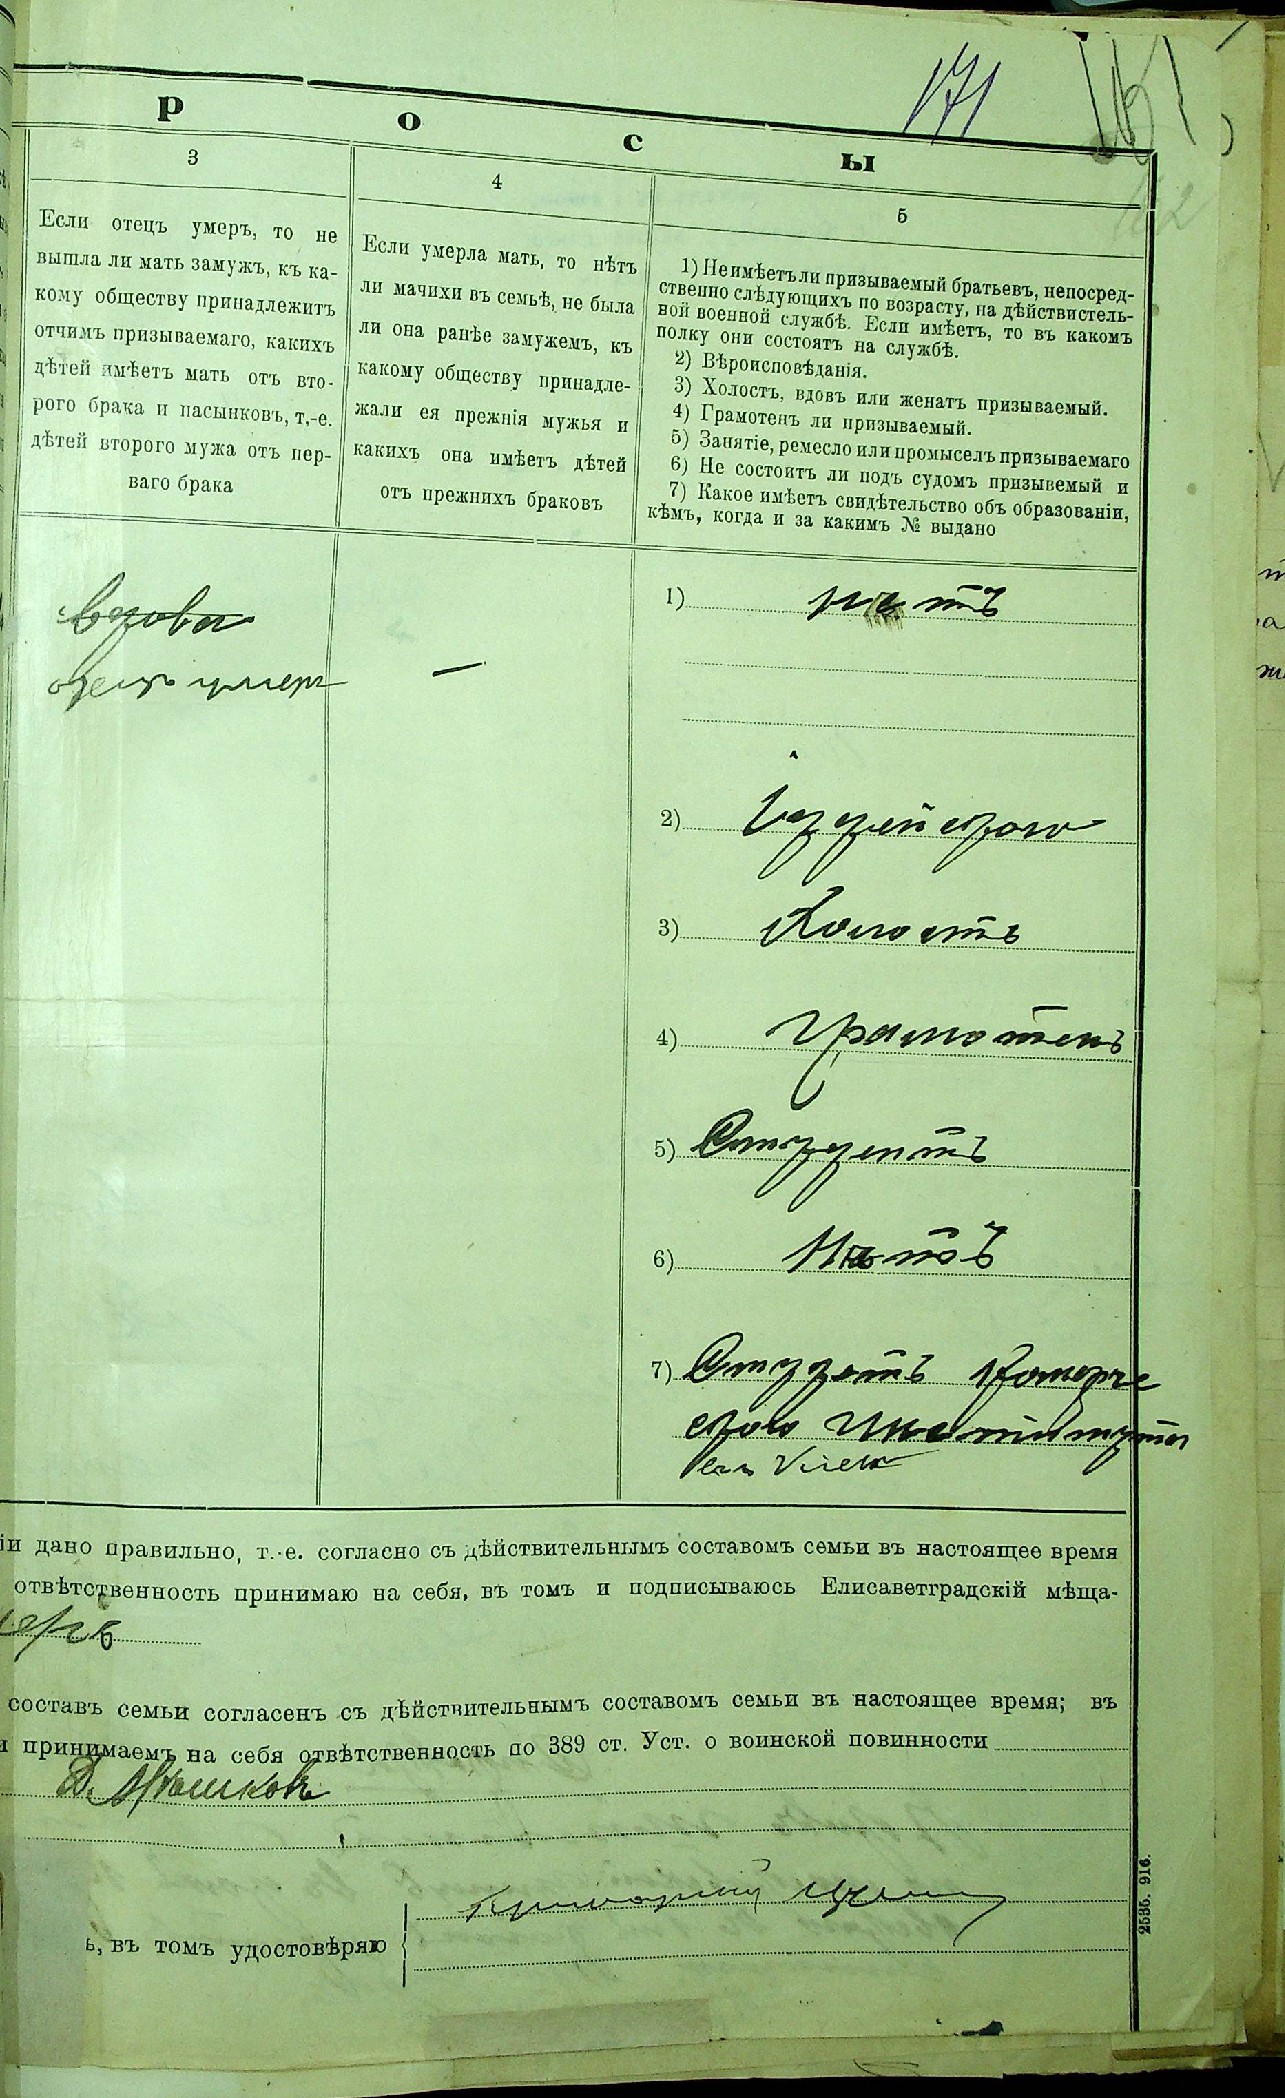 171
р о с ы
3
Если отецъ умеръ, то не
вышла ли мать замужъ, къ ка-
кому обществу принадлежитъ
отчимъ призываемаго, какихъ
дѣтей имѣетъ мать отъ вто-
рого брака и пасынковъ, т.-е.
дѣтей второго мужа отъ пер-
ваго брака
4
Если умерла мать, то нѣтъ
ли мачихи въ семьѣ, не была
ли она ранѣе замужемъ, къ
какому обществу принадле-
жали ея прежнія мужья и
какихъ она имѣетъ дѣтей
отъ прежнихъ браковъ
5
1) Не имѣетъ ли призываемый братьевъ, непосред-
ственно слѣдующихъ по возрасту, на дѣйствистель-
ной военной службѣ. Если имѣетъ, то въ какомъ
полку они состоятъ на службѣ.
2) Вѣроисповѣданія.
3) Холостъ, вдовъ или женатъ призываемый.
4) Грамотенъ ли призываемый.
5) Занятіе, ремесло или промыселъ призываемаго
6) Не состоитъ ли подъ судомъ призывемый и
7) Какое имѣетъ свидѣтельство объ образованіи,
кѣмъ, когда и за какимъ № выдано
вдова
отецъ умеръ
—
1) нетъ
2) Іудейскаго
3) Холостъ
4) Грамотенъ
5) Студентъ
6) Нетъ
7) Студетъ Комерче
скаго Института
іи дано правильно, т.-е. согласно съ дѣйствительнымъ составомъ семьи въ настоящее время
отвѣтственность принимаю на себя, въ томъ и подписываюсь Елисаветградскій мѣща-
составъ семьи согласенъ съ дѣйствительнымъ составомъ семьи въ настоящее время; въ
и принимаемъ на себя отвѣтственность по 389 ст. Уст. о воинской повинности
ь, въ томъ удостовѣряю
2535. 916.